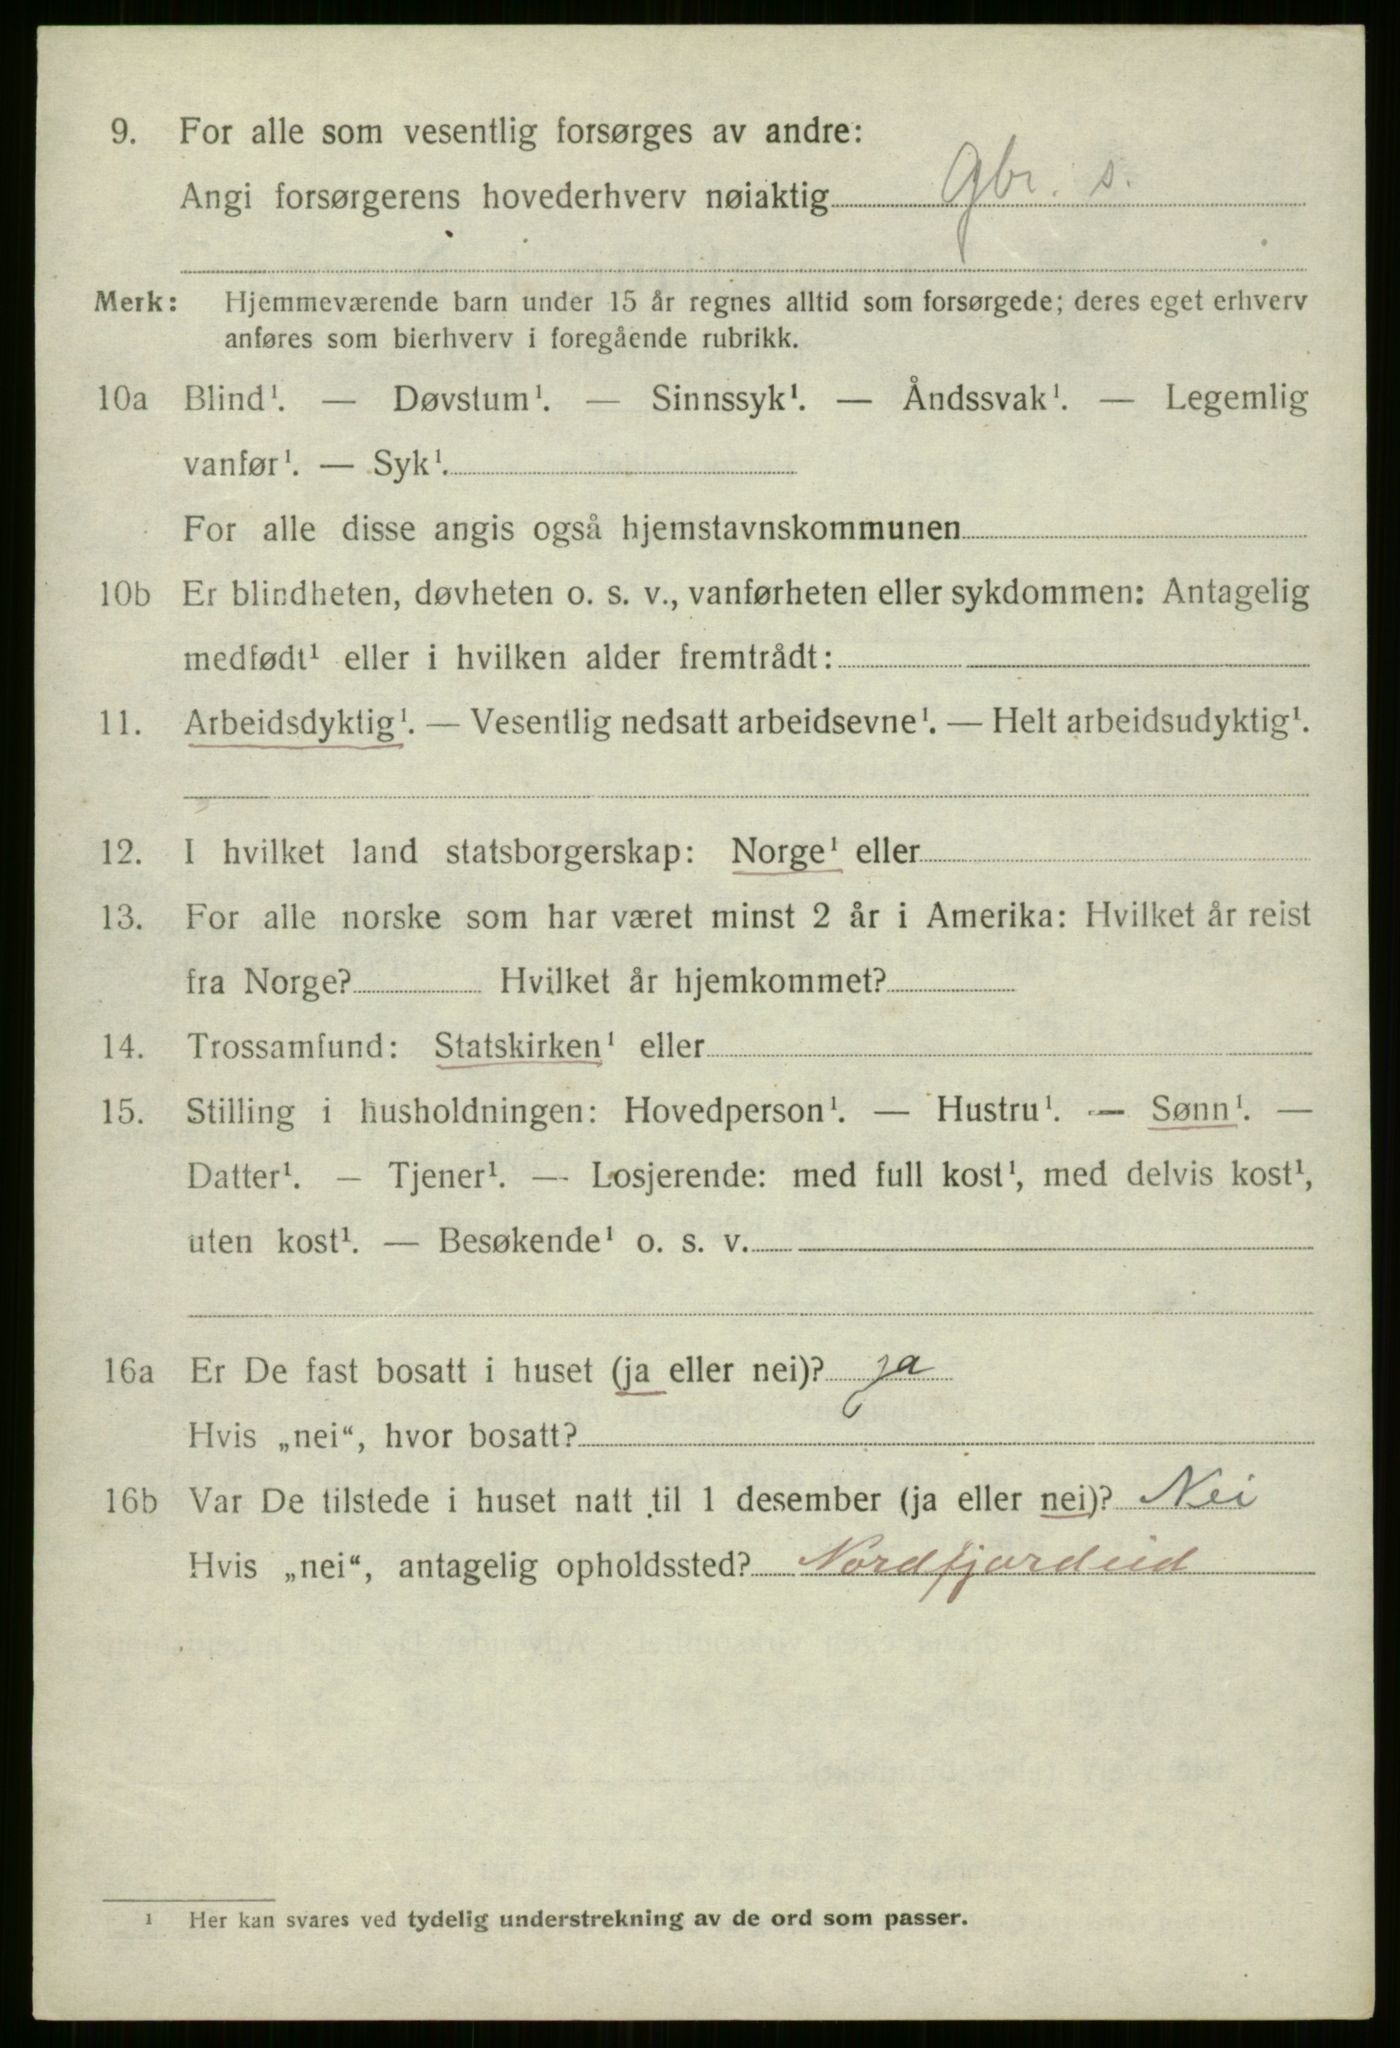 9. For alle som vesentlig forsørges av andre:
Angi forsørgerens hovederhverv nøiaktig Gbr. s.
Merk: Hjemmeværende barn under 15 år regnes alltid som forsørgede; deres eget erhverv
anføres som bierhverv i foregående rubrikk.
10a Blind¹. — Døvstum¹. — Sinnssyk¹. — Åndssvak¹. — Legemlig
vanfør¹. — Syk¹.
For alle disse angis også hjemstavnskommunen
10b Er blindheten, døvheten o. s. v., vanførheten eller sykdommen: Antagelig
medfødt¹ eller i hvilken alder fremtrådt:
11. Arbeidsdyktig¹. — Vesentlig nedsatt arbeidsevne¹. — Helt arbeidsudyktig¹.
12. I hvilket land statsborgerskap: Norge¹ eller
13. For alle norske som har været minst 2 år i Amerika: Hvilket år reist
fra Norge? Hvilket år hjemkommet?
14. Trossamfund: Statskirken¹ eller
15. Stilling i husholdningen: Hovedperson¹. — Hustru¹. — Sønn¹. —
Datter¹. — Tjener¹. — Losjerende: med full kost¹, med delvis kost¹,
uten kost¹. — Besøkende¹ o. s. v.
16a Er De fast bosatt i huset (ja eller nei)? ja
Hvis „nei“, hvor bosatt?
16b Var De tilstede i huset natt til 1 desember (ja eller nei)? Nei
Hvis „nei“, antagelig opholdssted? Nordfjordeid
¹ Her kan svares ved tydelig understrekning av de ord som passer.